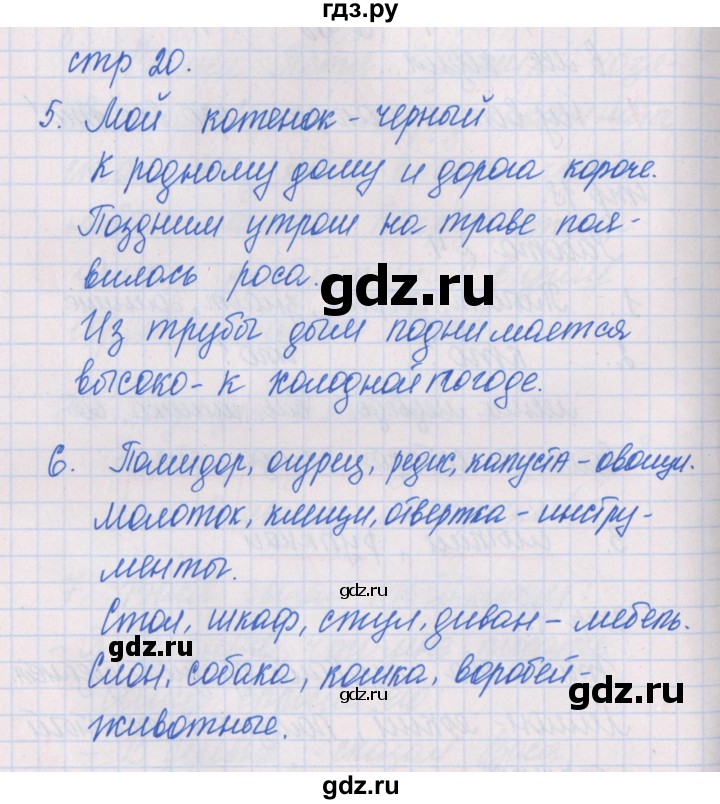 гдз.ру
стр 20.
5. Мой котенок - черный
К родному дому и дорога короче.
Поздним утром на траве поя-
вилась роса.
gdz.ru
Из трубы дым поднимается
высоко - к холодной погоде.
6. Помидор, огурец, редис, капуста - овощи.
Молоток, клещи, отвертка - инстру-
менты.
Стол, шкаф, стул, диван - мебель.
gdz.ru
Слон, собака, кошка, воробей -
животные.
gdz.ru